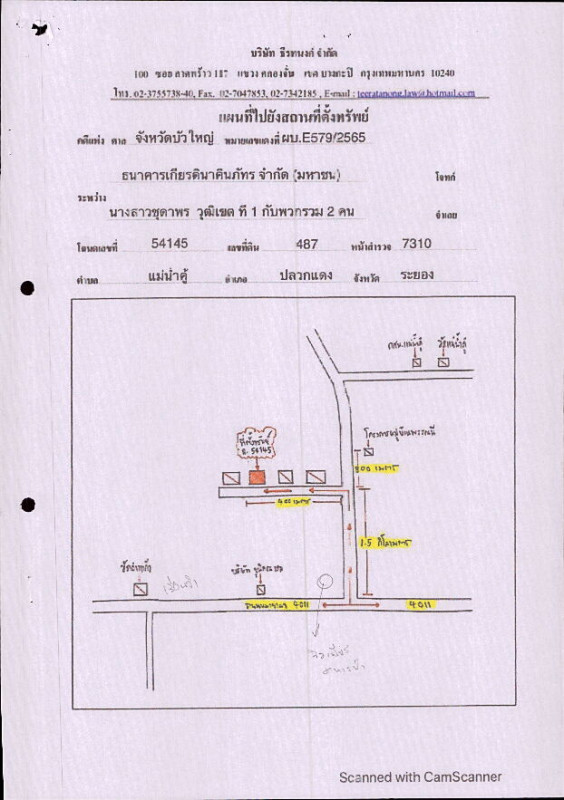 บริษัท ธีรทนงค์ จำกัด
100 ซอย ลาดพร้าว 117 แขวง คลองจั่น เขต บางกะปิ กรุงเทพมหานคร 10240
โทร. 02-3755738-40, Fax. 02-7047853, 02-7342185 , E-mail : teeratanong.law@hotmail.com
แผนที่ไปยังสถานที่ตั้งทรัพย์
คดีแห่ง ศาล จังหวัดบัวใหญ่ หมายเลขแดงที่ ผบ.E579/2565
ธนาคารเกียรตินาคินภัทร จำกัด (มหาชน) โจทก์
ระหว่าง
นางสาวชุดาพร วุฒิเขต ที่ 1 กับพวกรวม 2 คน จำเลย
โฉนดเลขที่ 54145 เลขที่ดิน 487 หน้าสำรวจ 7310
ตำบล แม่น้ำคู้ อำเภอ ปลวกแดง จังหวัด ระยอง
วัดแม่น้ำคู้
ที่ตั้งทรัพย์
ฉ. 54145
200 เมตร
400 เมตร
1.5 กิโลเมตร
บริษัท
4011
4011
Scanned with CamScanner